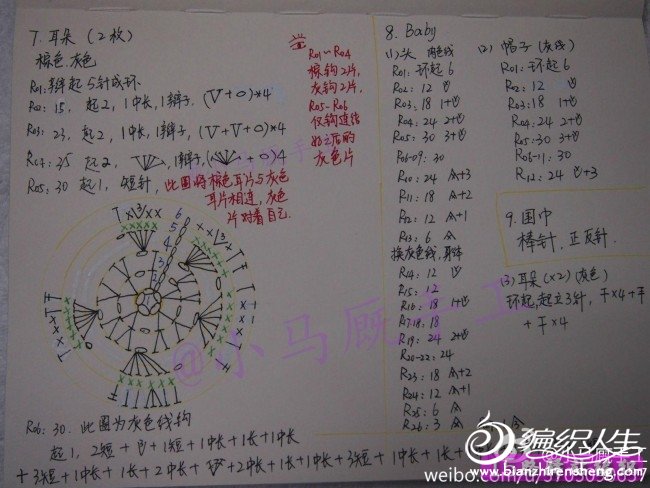 7. 耳朵 (2枚)
棕色.灰色
R01: 辫起5针成环
R02: 15, 起2, 1中长, 1辫子, (V+0)*4
R03: 23, 起2, 1中长, 1辫子, (V+V+0)*4
R04: 35 起2, 1辫子, +0)*4
R05: 30 起1, 短针, 此圈将棕色耳片与灰色
耳片相连, 灰色
片对着自己.
R01~R04
棕钩2片,
灰钩2片,
R05-R06
仅钩连结
好之后的
灰色片
6
5
4
3
2
R06: 30. 此圈为灰色线钩
起1, 2短+V+1短+1中长+1长+1中长
+3短+1中长+1长+2中长+ +2中长+1长+1中长+3短+1中长+1长
8. Baby
(1)头 肉色线
R01: 环起6
R02: 12 V
R03: 18 1+V
R04: 24 2+V
R05: 30 3+V
R06-09: 30
R10: 24 A+3
R11: 18 A+2
R12: 12 A+1
R13: 6 A
换灰色线,身体
R14: 12 V
R15: 12
R16: 18 1+V
R17-18: 18
R19: 24 2+V
R20-22: 24
R23: 18 A+2
R24: 12 A+1
R25: 6 A
R26: 3 A
(2) 帽子(灰线)
R01: 环起6
R02: 12 V
R03: 18 1+V
R04: 24 2+V
R05: 30 3+V
R06-11: 30
R12: 24 +3
9. 围巾
棒针, 正反针.
(3) 耳朵(×2)(灰色)
环起,起立3针, 干×4+干
+干×4
@小马厩手工
编织人生
weibo.com/u/
www.bianzhirensheng.com